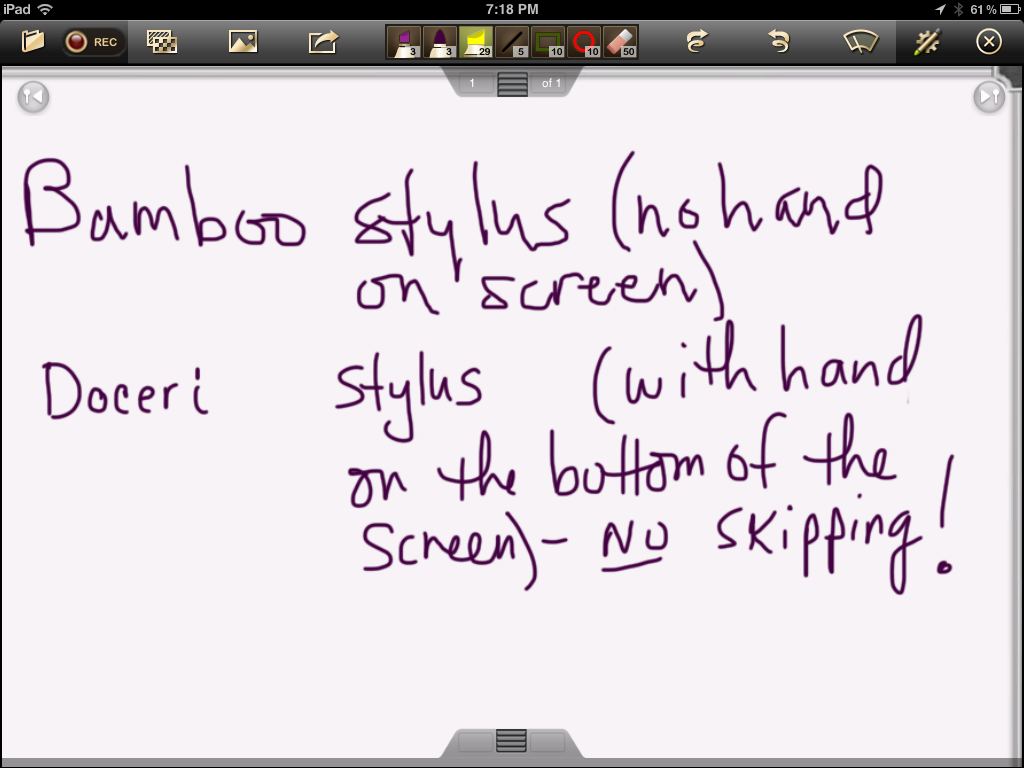 iPad 7:18 PM 61%
REC 3 3 29 5 10 10 50
1 of 1
Bamboo stylus (no hand
on screen)
Doceri stylus (with hand
on the bottom of the
screen) - NO skipping!